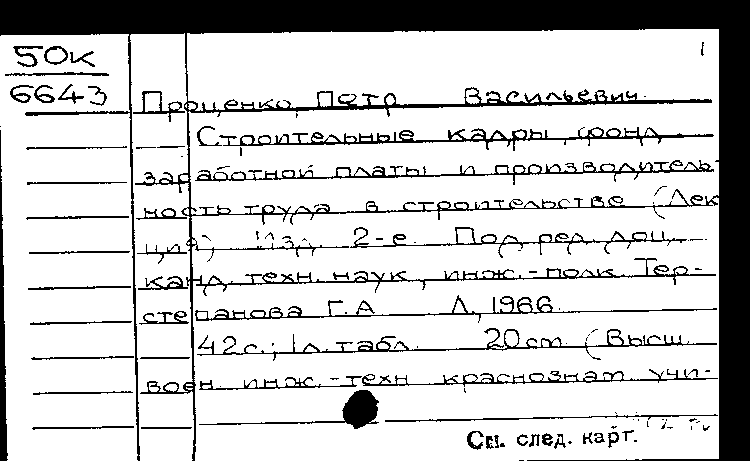 50к
1
6643
Проценко, Петр Васильевич.
Строительные кадры, фонд
заработной платы и производитель-
ность труда в строительстве (Лек
ция) Изд. 2-е. Под ред. доц.
канд. техн. наук, инж.-полк. Тер-
степанова Г.А Л., 1966.
42с.; 1л. табл. 20см (Высш.
воен инж.-техн краснознам. учи-
См. след. карт.